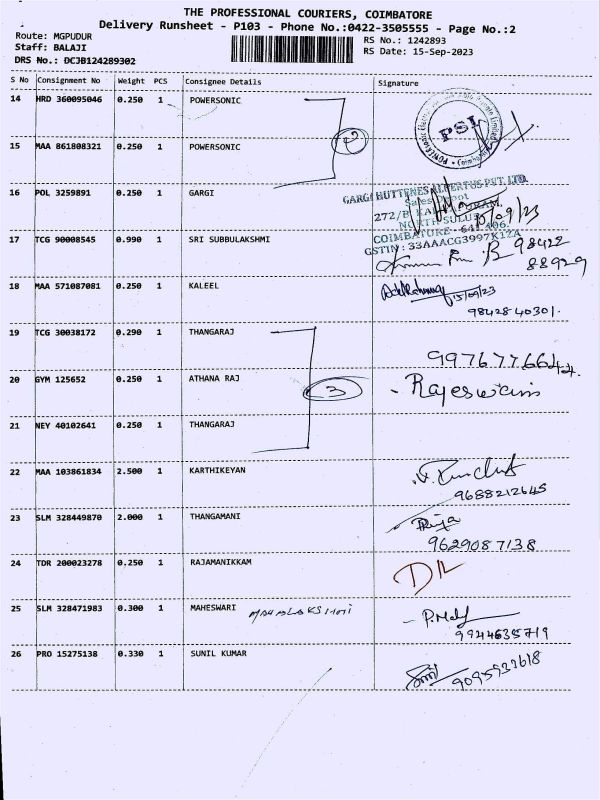 THE PROFESSIONAL COURIERS, COIMBATORE
Delivery Runsheet - P103 - Phone No.:0422-3505555 - Page No.:2
Route: MGPUDUR
RS No.: 1242893
Staff: BALAJI
RS Date: 15-Sep-2023
DRS No.: DCJB124289302
S No Consignment No Weight PCS Consignee Details Signature
14 HRD 360095046 0.250 1 POWERSONIC
2
PSI
15 MAA 861808321 0.250 1 POWERSONIC
16 POL 3259891 0.250 1 GARGI
GARGI HUTTENES ALBERTUS PVT. LTD
Sales Depot
272/B
NORTH SULUR
COIMBATORE - 641 406.
GSTIN : 33AAACG3997K1ZA
15/09/23
17 TCG 90008545 0.990 1 SRI SUBBULAKSHMI
98422
88929
18 MAA 571087081 0.250 1 KALEEL
15/09/23
9842840301.
19 TCG 30038172 0.290 1 THANGARAJ
9976776644
20 GYM 125652 0.250 1 ATHANA RAJ
3
- Rajeswari
21 NEY 40102641 0.250 1 THANGARAJ
22 MAA 103861834 2.500 1 KARTHIKEYAN
9688212645
23 SLM 328449870 2.000 1 THANGAMANI
Priya
9629087138
24 TDR 200023278 0.250 1 RAJAMANIKKAM
D/L
25 SLM 328471983 0.300 1 MAHESWARI MAHALAKSHMI
9944635719
26 PRO 15275138 0.330 1 SUNIL KUMAR
9095932618